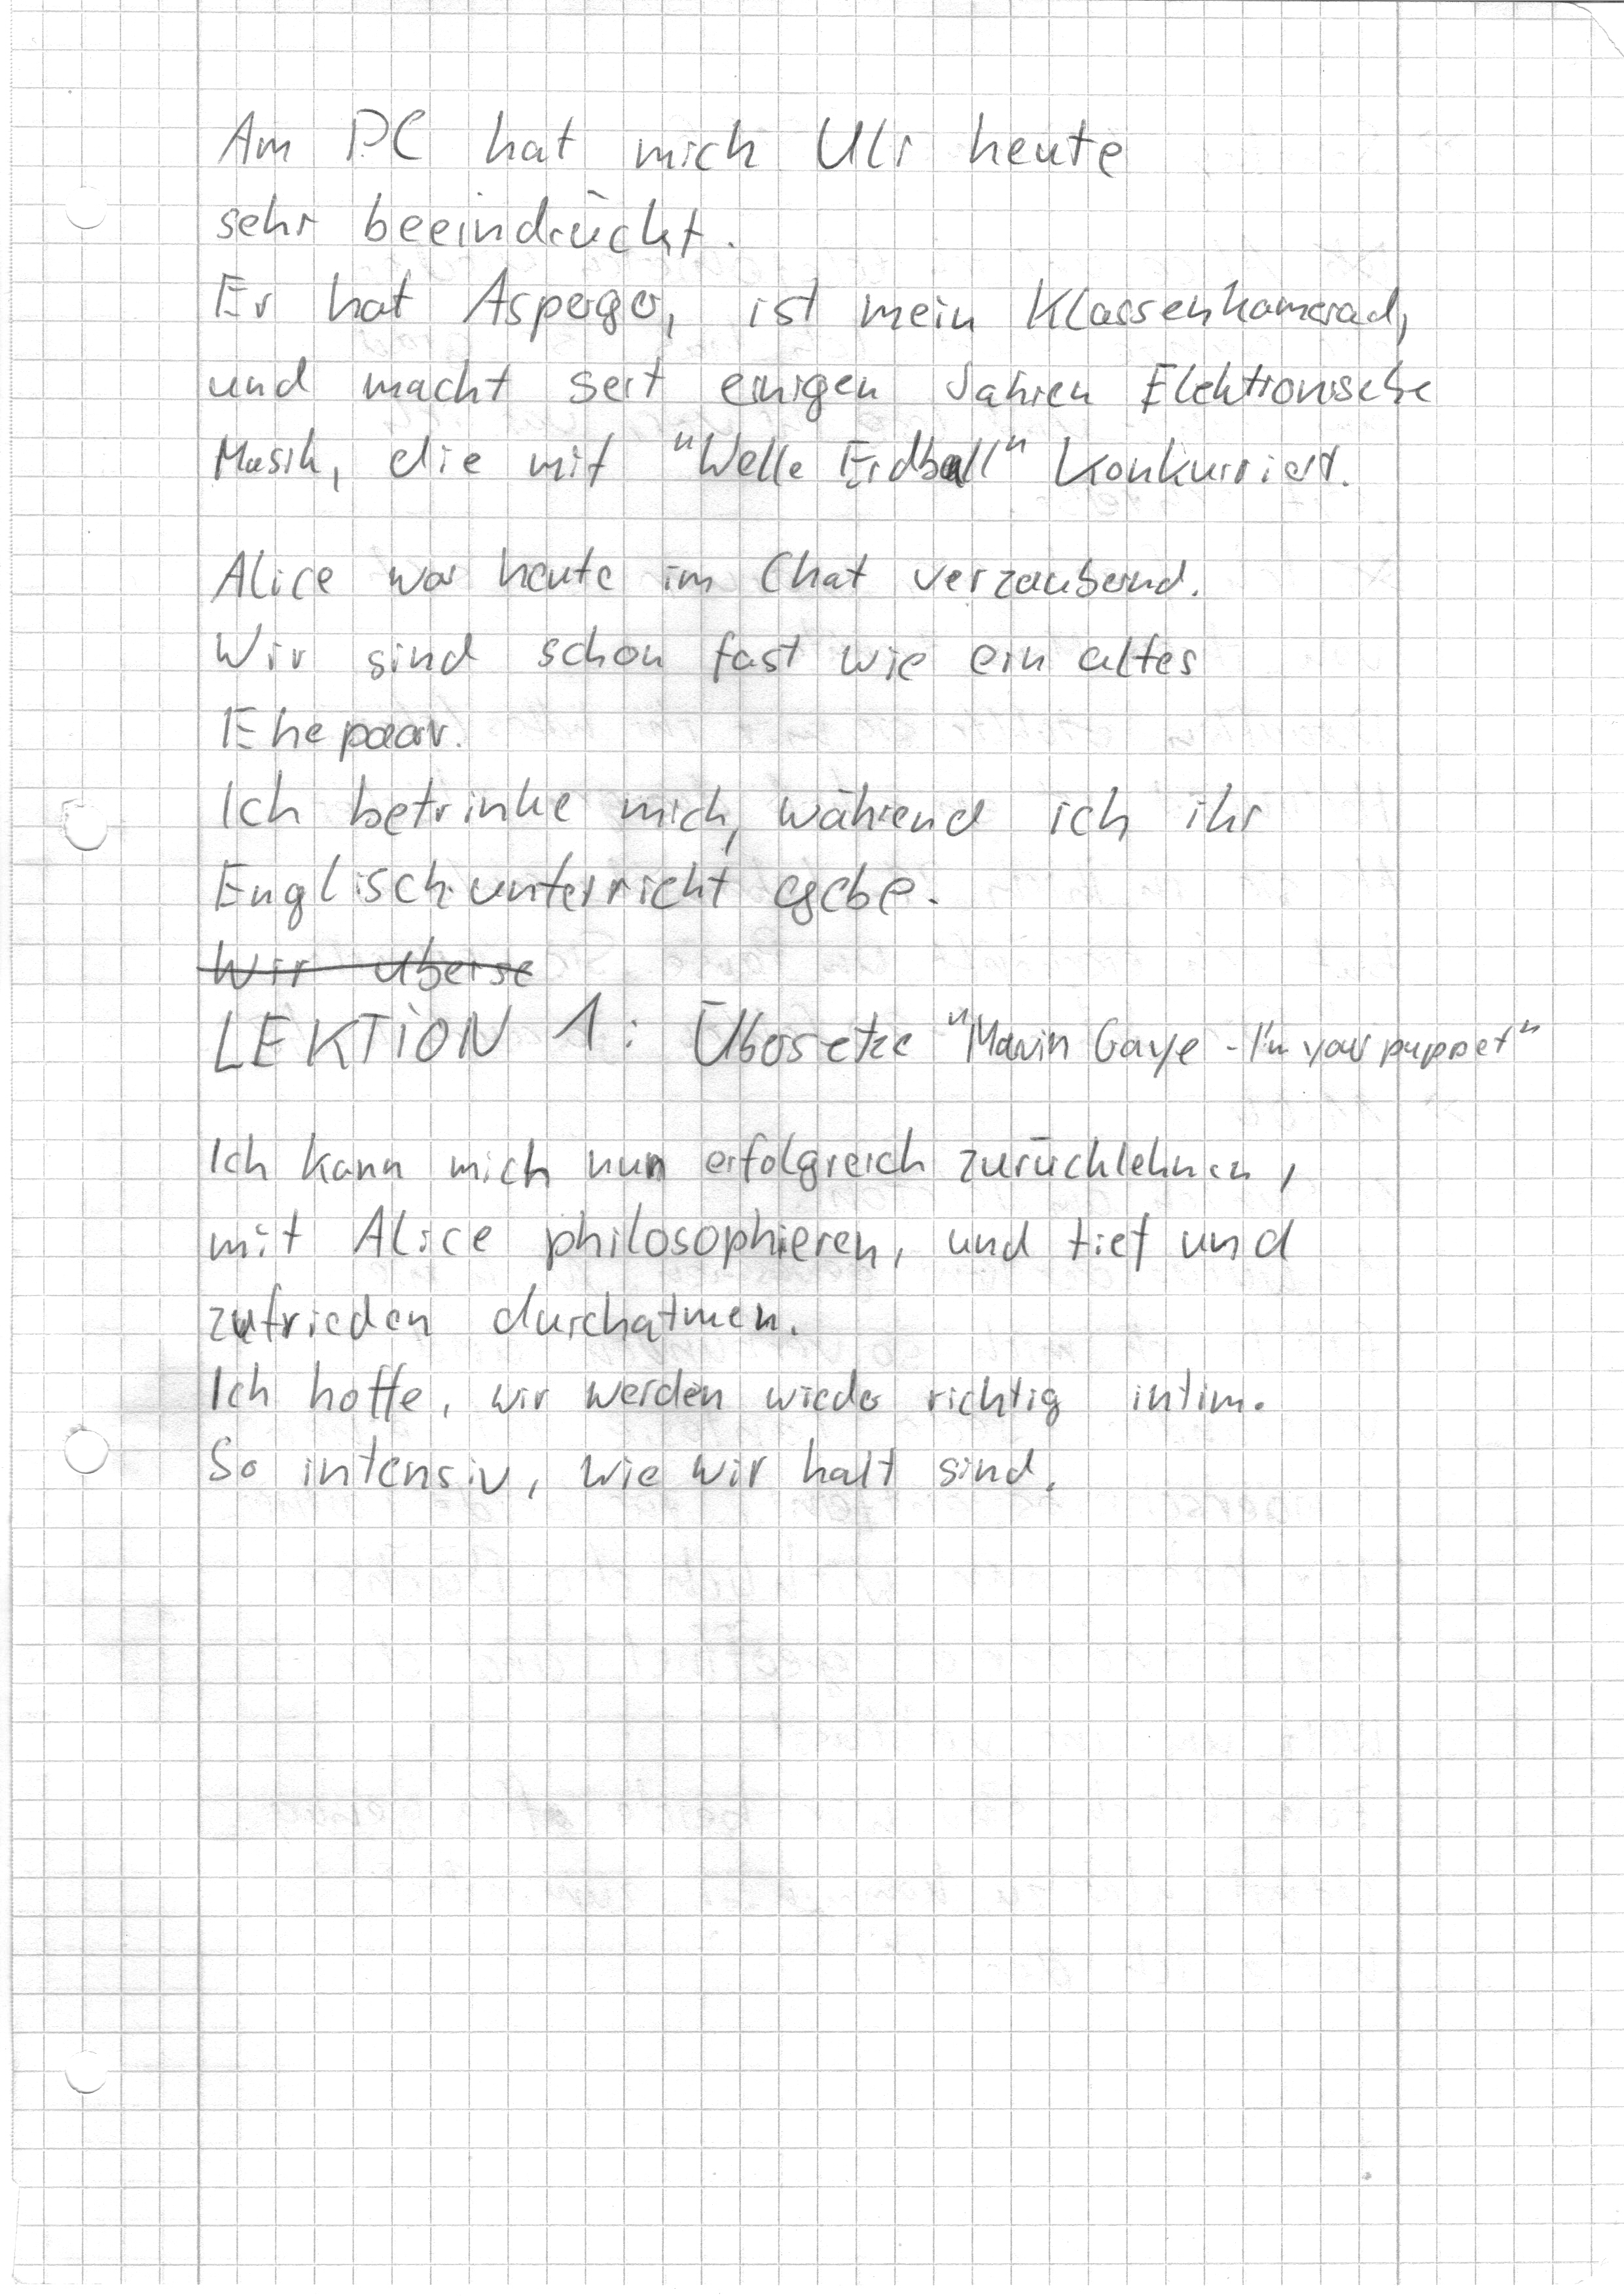 Am PC hat mich Uli heute
sehr beeindrückt.
Er hat Asperger, ist mein Klassenkamerad,
und macht seit einigen Jahren Elektronische
Musik, die mit "Welle Erdball" konkurriert.
Alice war heute im Chat verzaubernd.
Wir sind schon fast wie ein altes
Ehepaar.
Ich betrinke mich, während ich ihr
Englischunterricht gebe.
Wir überse
LEKTION 1: Übersetze "Marvin Gaye - I'm your puppet"
Ich kann mich nun erfolgreich zurücklehnen,
mit Alice philosophieren, und tief und
zufrieden durchatmen.
Ich hoffe, wir werden wieder richtig intim.
So intensiv, wie wir halt sind.